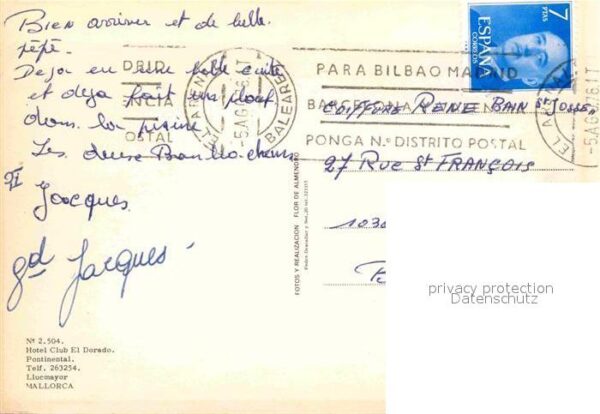 Bien arriver et de belle
pépé.
Deja eu une belle cuite
et deja fait un plouf
dans la picine
Les deux
Jacques
gd Jacques
Nº 2.504.
Hotel Club El Dorado.
Pontinental.
Telf. 263254.
Lluchmayor
MALLORCA
FOTOS Y REALIZACION FLOR DE ALMENDRO
7
PTAS
ESPAÑA
CORREOS
DRID
ENCIA
OSTAL
EL ARENAL
-5AGO
BALEARES
PARA BILBAO MADRID
BARCELONA
PONGA N.º DISTRITO POSTAL
EL ARENAL
-5AGO
COIFFURE RENE BAIN St JOSSE
27 RUE St FRANÇOIS
1030
privacy protection
Datenschutz